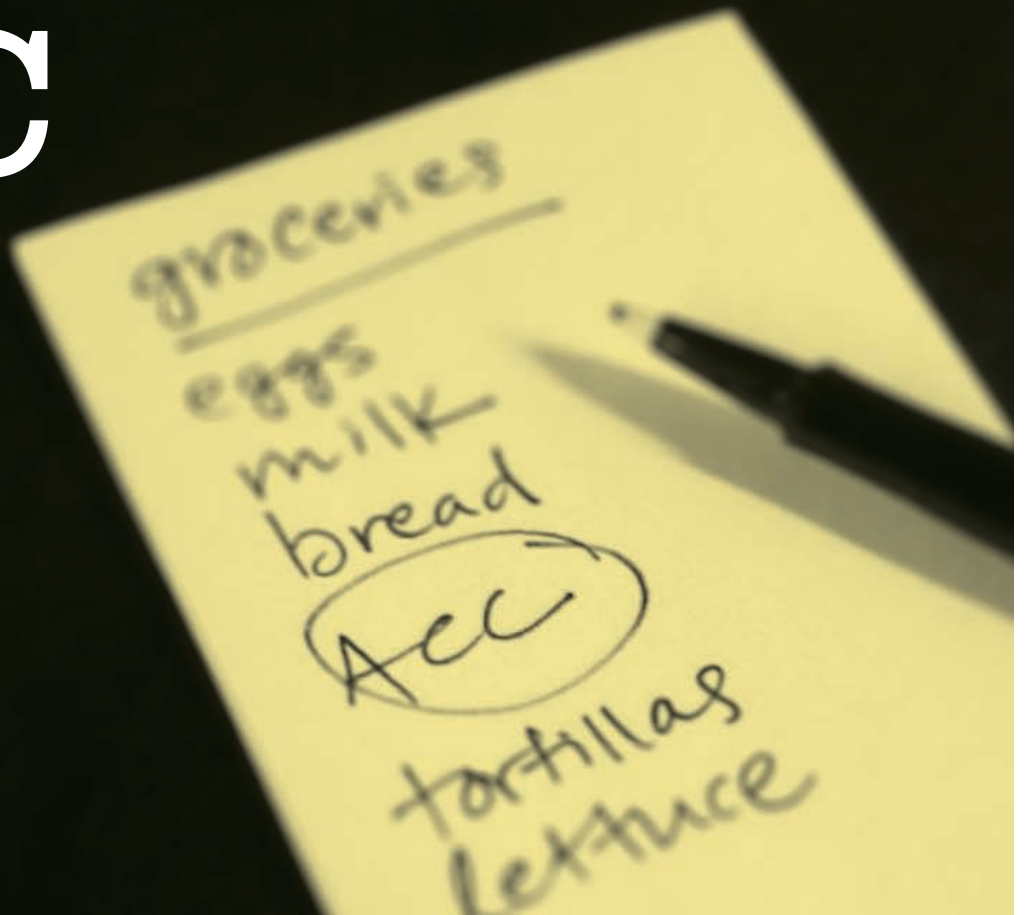 C
groceries
eggs
milk
bread
ACC
tortillas
lettuce